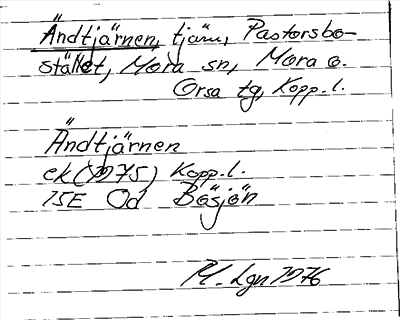 Ändtjärnen, tjärn, Pastorsbo-
stället, Mora sn, Mora o.
Orsa tg, Kopp.l.
Ändtjärnen
ek (1975) Kopp.l.
15E Od Bösjön
M. Lgn 1976